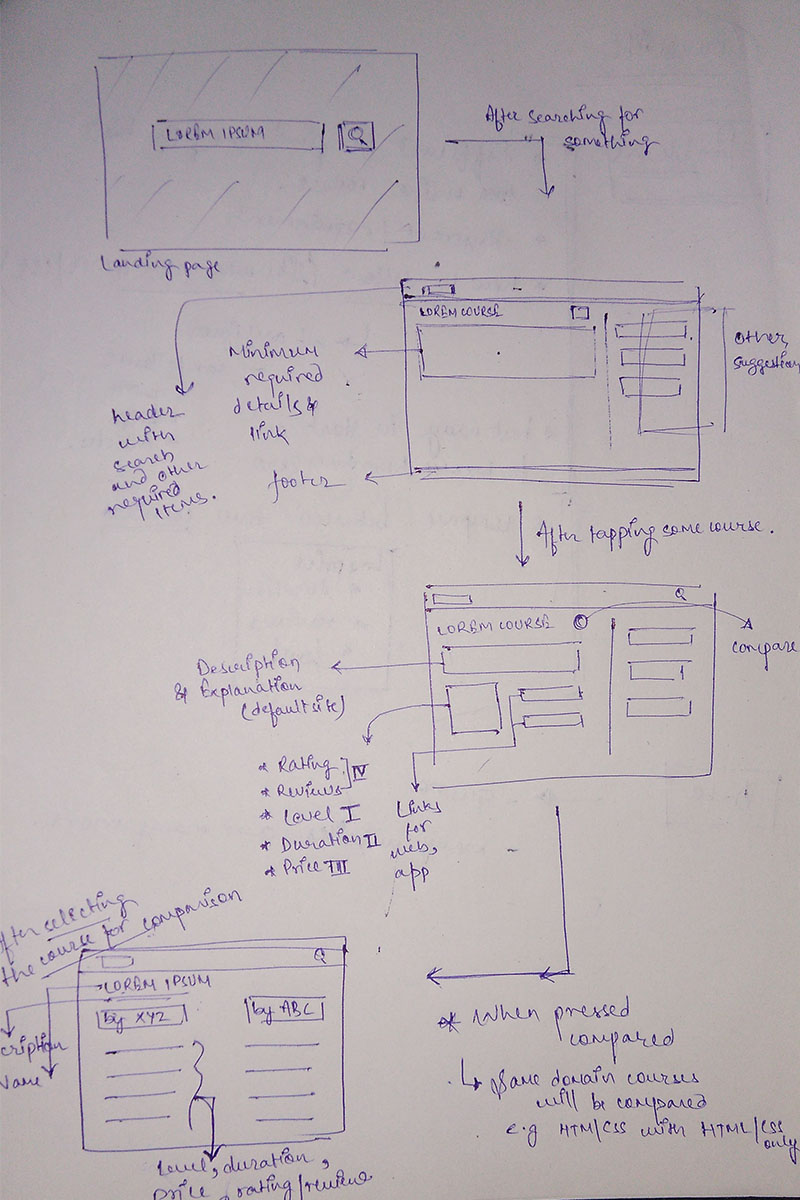 LOREM IPSUM
After searching for
something
Landing page
LOREM COURSE
Other
suggestion
Minimum
required
details &
link
header
with
search
and other
required
items.
footer
After tapping some course.
LOREM COURSE
C
compare
Description
& Explanation
(default site)
* Rating
* Reviews IV
* Level I
* Duration II
* Price III
Links
for
web,
app
After selecting
the course for comparison
LOREM IPSUM
by XYZ
by ABC
cription
Name
Level, duration,
price, rating/review
* When pressed
compared
Same domain courses
will be compared
e.g HTM/CSS with HTML/CSS
only